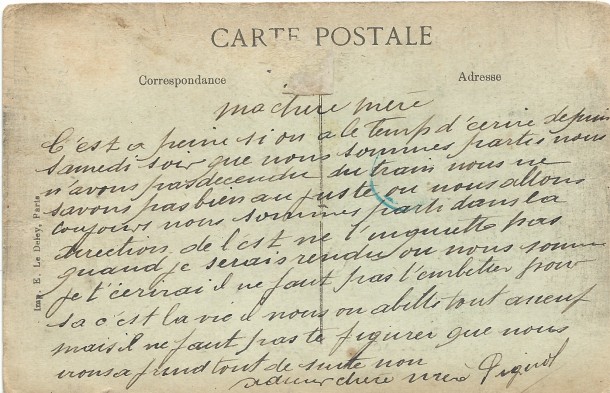 CARTE POSTALE
Correspondance
Adresse
Imp. E. Le Deley, Paris
ma chere mère
C'est a peine si on a le temp d'écrire depuis
samedi soir que nous sommes partis nous
n'avons pas decendu du train nous ne
savons pas bien au juste ou nous allons
toujours nous sommes parti dans la
direction de l'est ne t'inquette pas
quand je serais rendu ou nous somme
je t'ecrirai il ne faut pas t'embêter pour
sa c'est la vie il nous on abillé tout a neuf
mais il ne faut pas te figurer que nous
irons a frond tout de suite non
chere mère